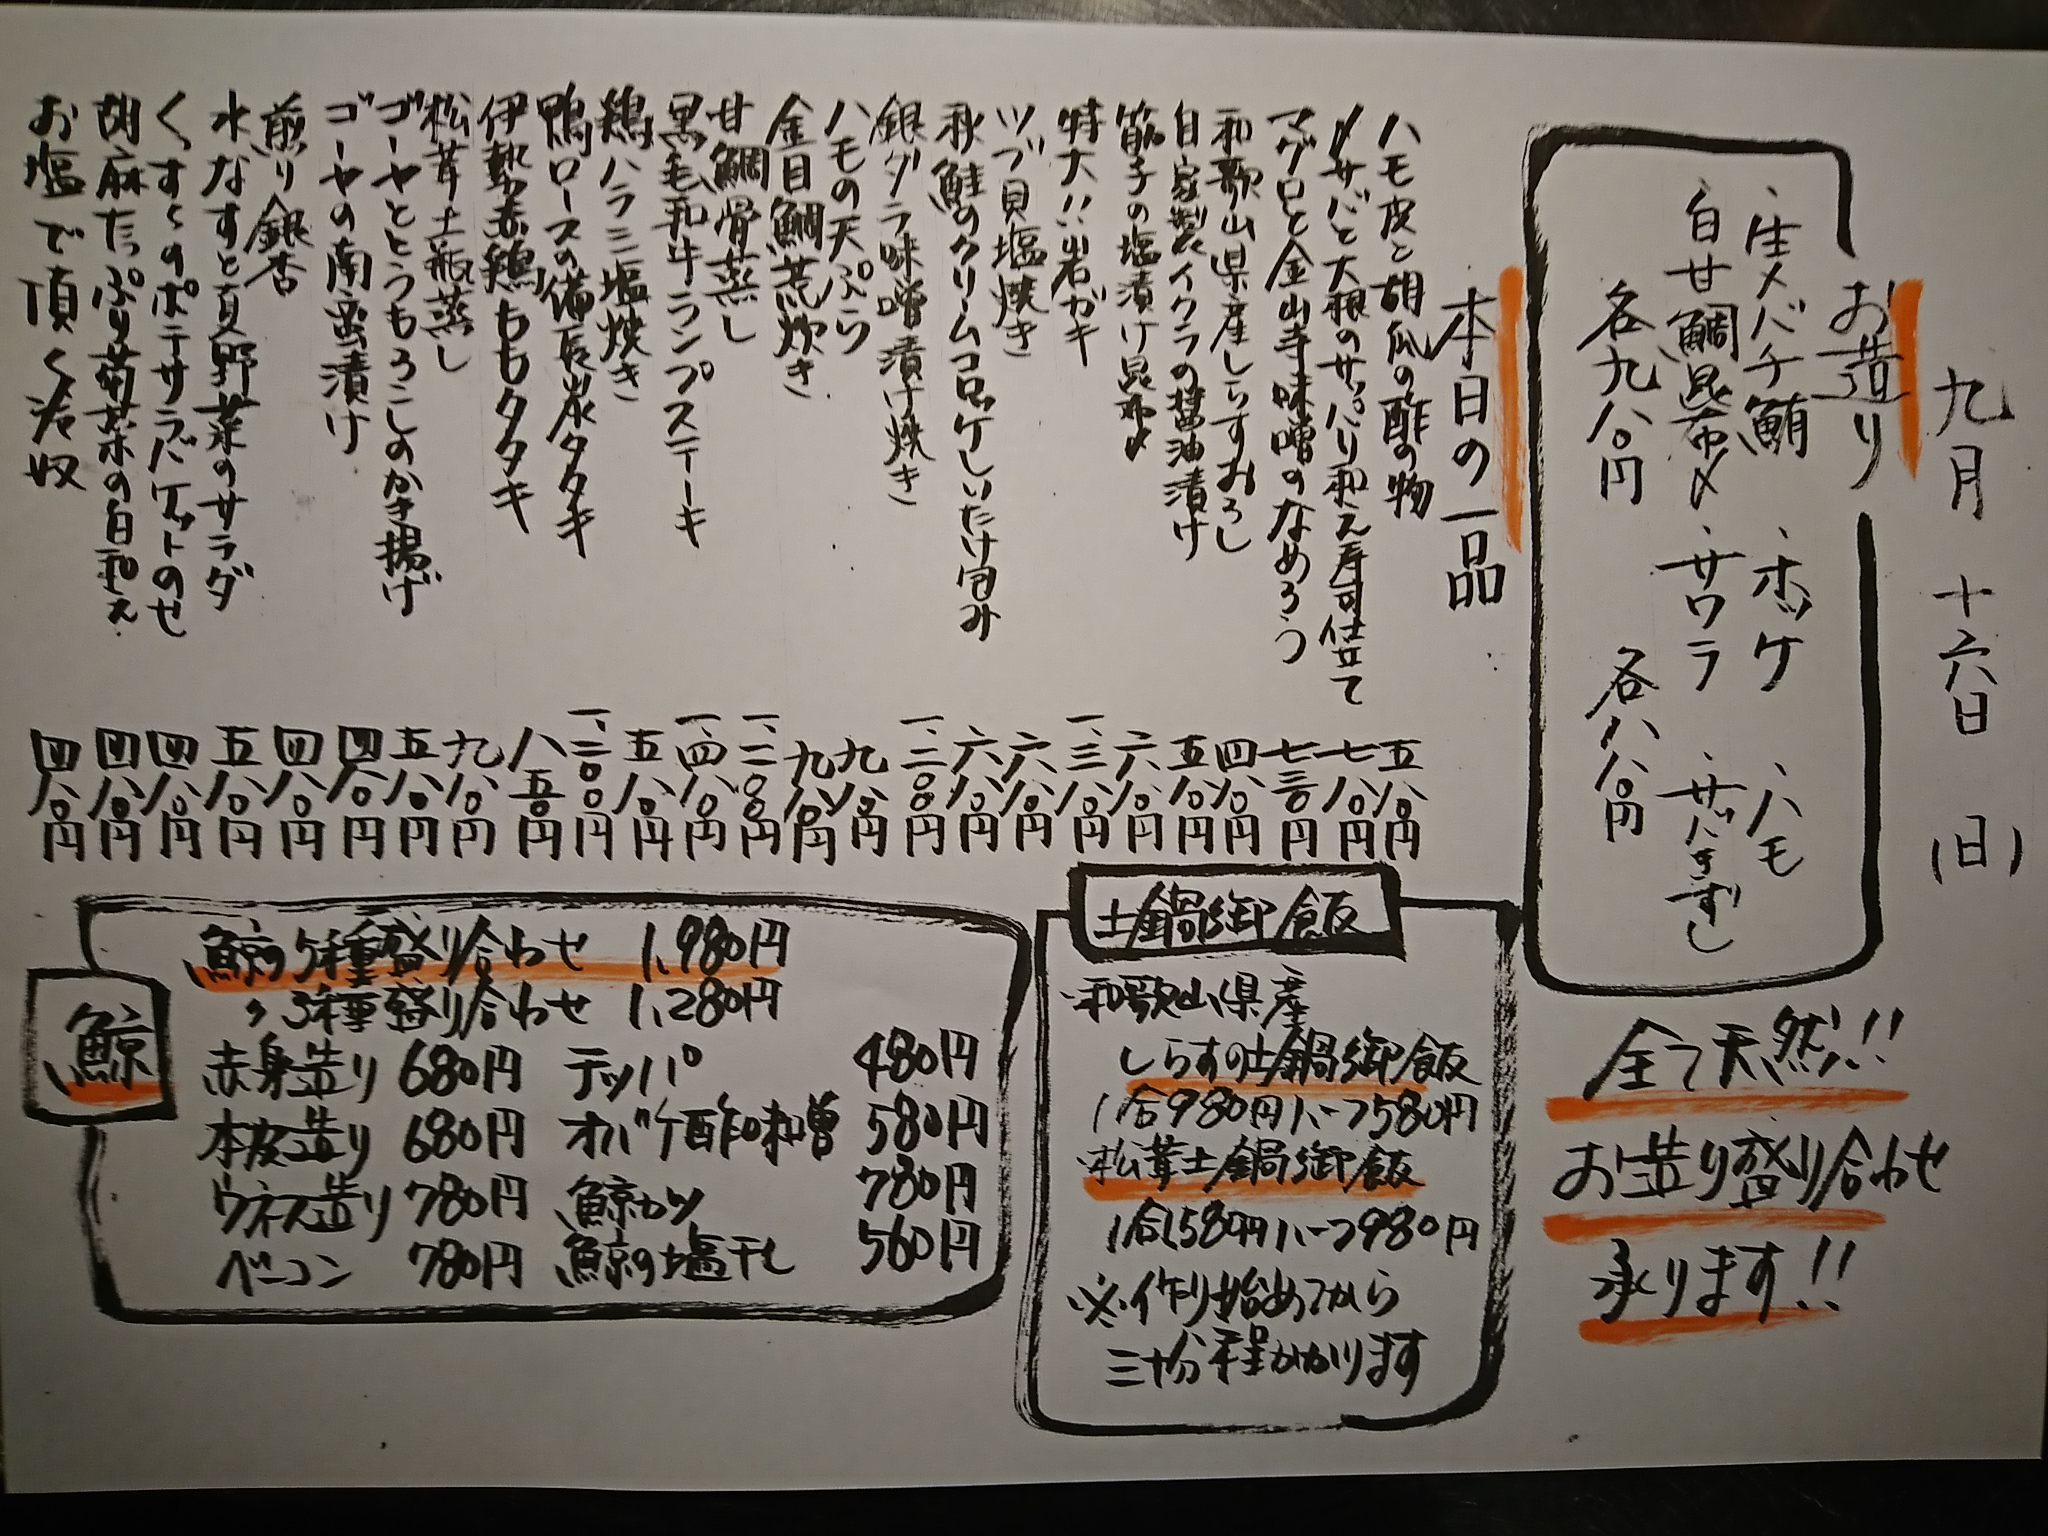 九月十六日(日)
お造り
・生メバチ鮪 ・ホッケ ・ハモ
・白甘鯛昆布〆 ・サワラ ・サバきずし
各九八〇円 各八八〇円
全て天然!!
お造り盛り合わせ
承ります!!
本日の一品
ハモ皮と胡瓜の酢の物 五八〇円
〆サバと大根のサッパリ和え寿司仕立て 七八〇円
マグロと金山寺味噌のなめろう 七三〇円
和歌山県産しらすおろし 四八〇円
自家製イクラの醤油漬け 五八〇円
筋子の塩漬け昆布〆 六八〇円
特大!!岩ガキ 一、三八〇円
ツブ貝塩焼き 六八〇円
秋鮭のクリームコロッケしいたけ包み 六八〇円
銀ダラ味噌漬け焼き 一、二〇〇円
ハモの天ぷら 九八〇円
金目鯛荒炊き 九八〇円
甘鯛骨蒸し 一、二〇〇円
黒毛和牛ランプステーキ 一、四八〇円
鶏ハラミ塩焼き 五八〇円
鴨ロースの備長炭タタキ 一、二〇〇円
伊勢赤鶏ももタタキ 八五〇円
松茸土瓶蒸し 九八〇円
ゴーヤととうもろこしのかき揚げ 五八〇円
ゴーヤの南蛮漬け 四八〇円
煎り銀杏 四八〇円
水なすと夏野菜のサラダ 五八〇円
くずしのポテサラバケットのせ 四八〇円
胡麻たっぷり菊菜の白和え 四八〇円
お塩で頂く冷奴 四八〇円
土鍋御飯
・和歌山県産
しらすの土鍋御飯
1合980円ハーフ580円
・松茸土鍋御飯
1合1580円ハーフ980円
※作り始めてから
三十分程かかります
鯨
鯨の5種盛り合わせ 1,980円
〃 3種盛り合わせ 1,280円
赤身造り 680円 テッパ 480円
本皮造り 680円 オバケ酢味噌 580円
ウネス造り 780円 鯨カツ 780円
ベーコン 780円 鯨の塩干し 560円